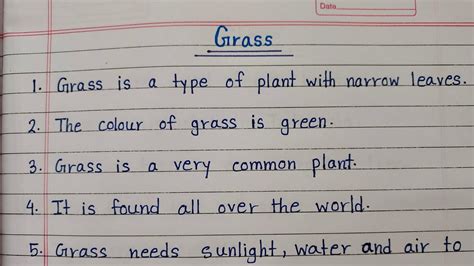 Date
Grass
1. Grass is a type of plant with narrow leaves.
2. The colour of grass is green.
3. Grass is a very common plant.
4. It is found all over the world.
5. Grass needs sunlight, water and air to